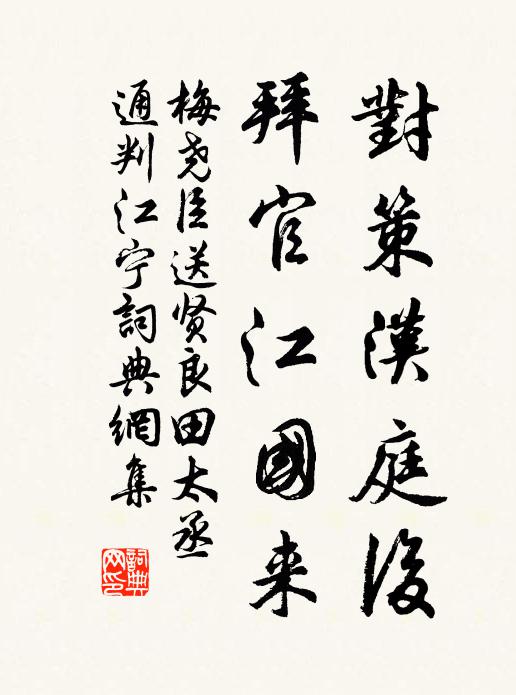 對策漢庭後
拜官江國来
梅尧臣送贤良田太丞
通判江宁詞典網集
詞典
网印